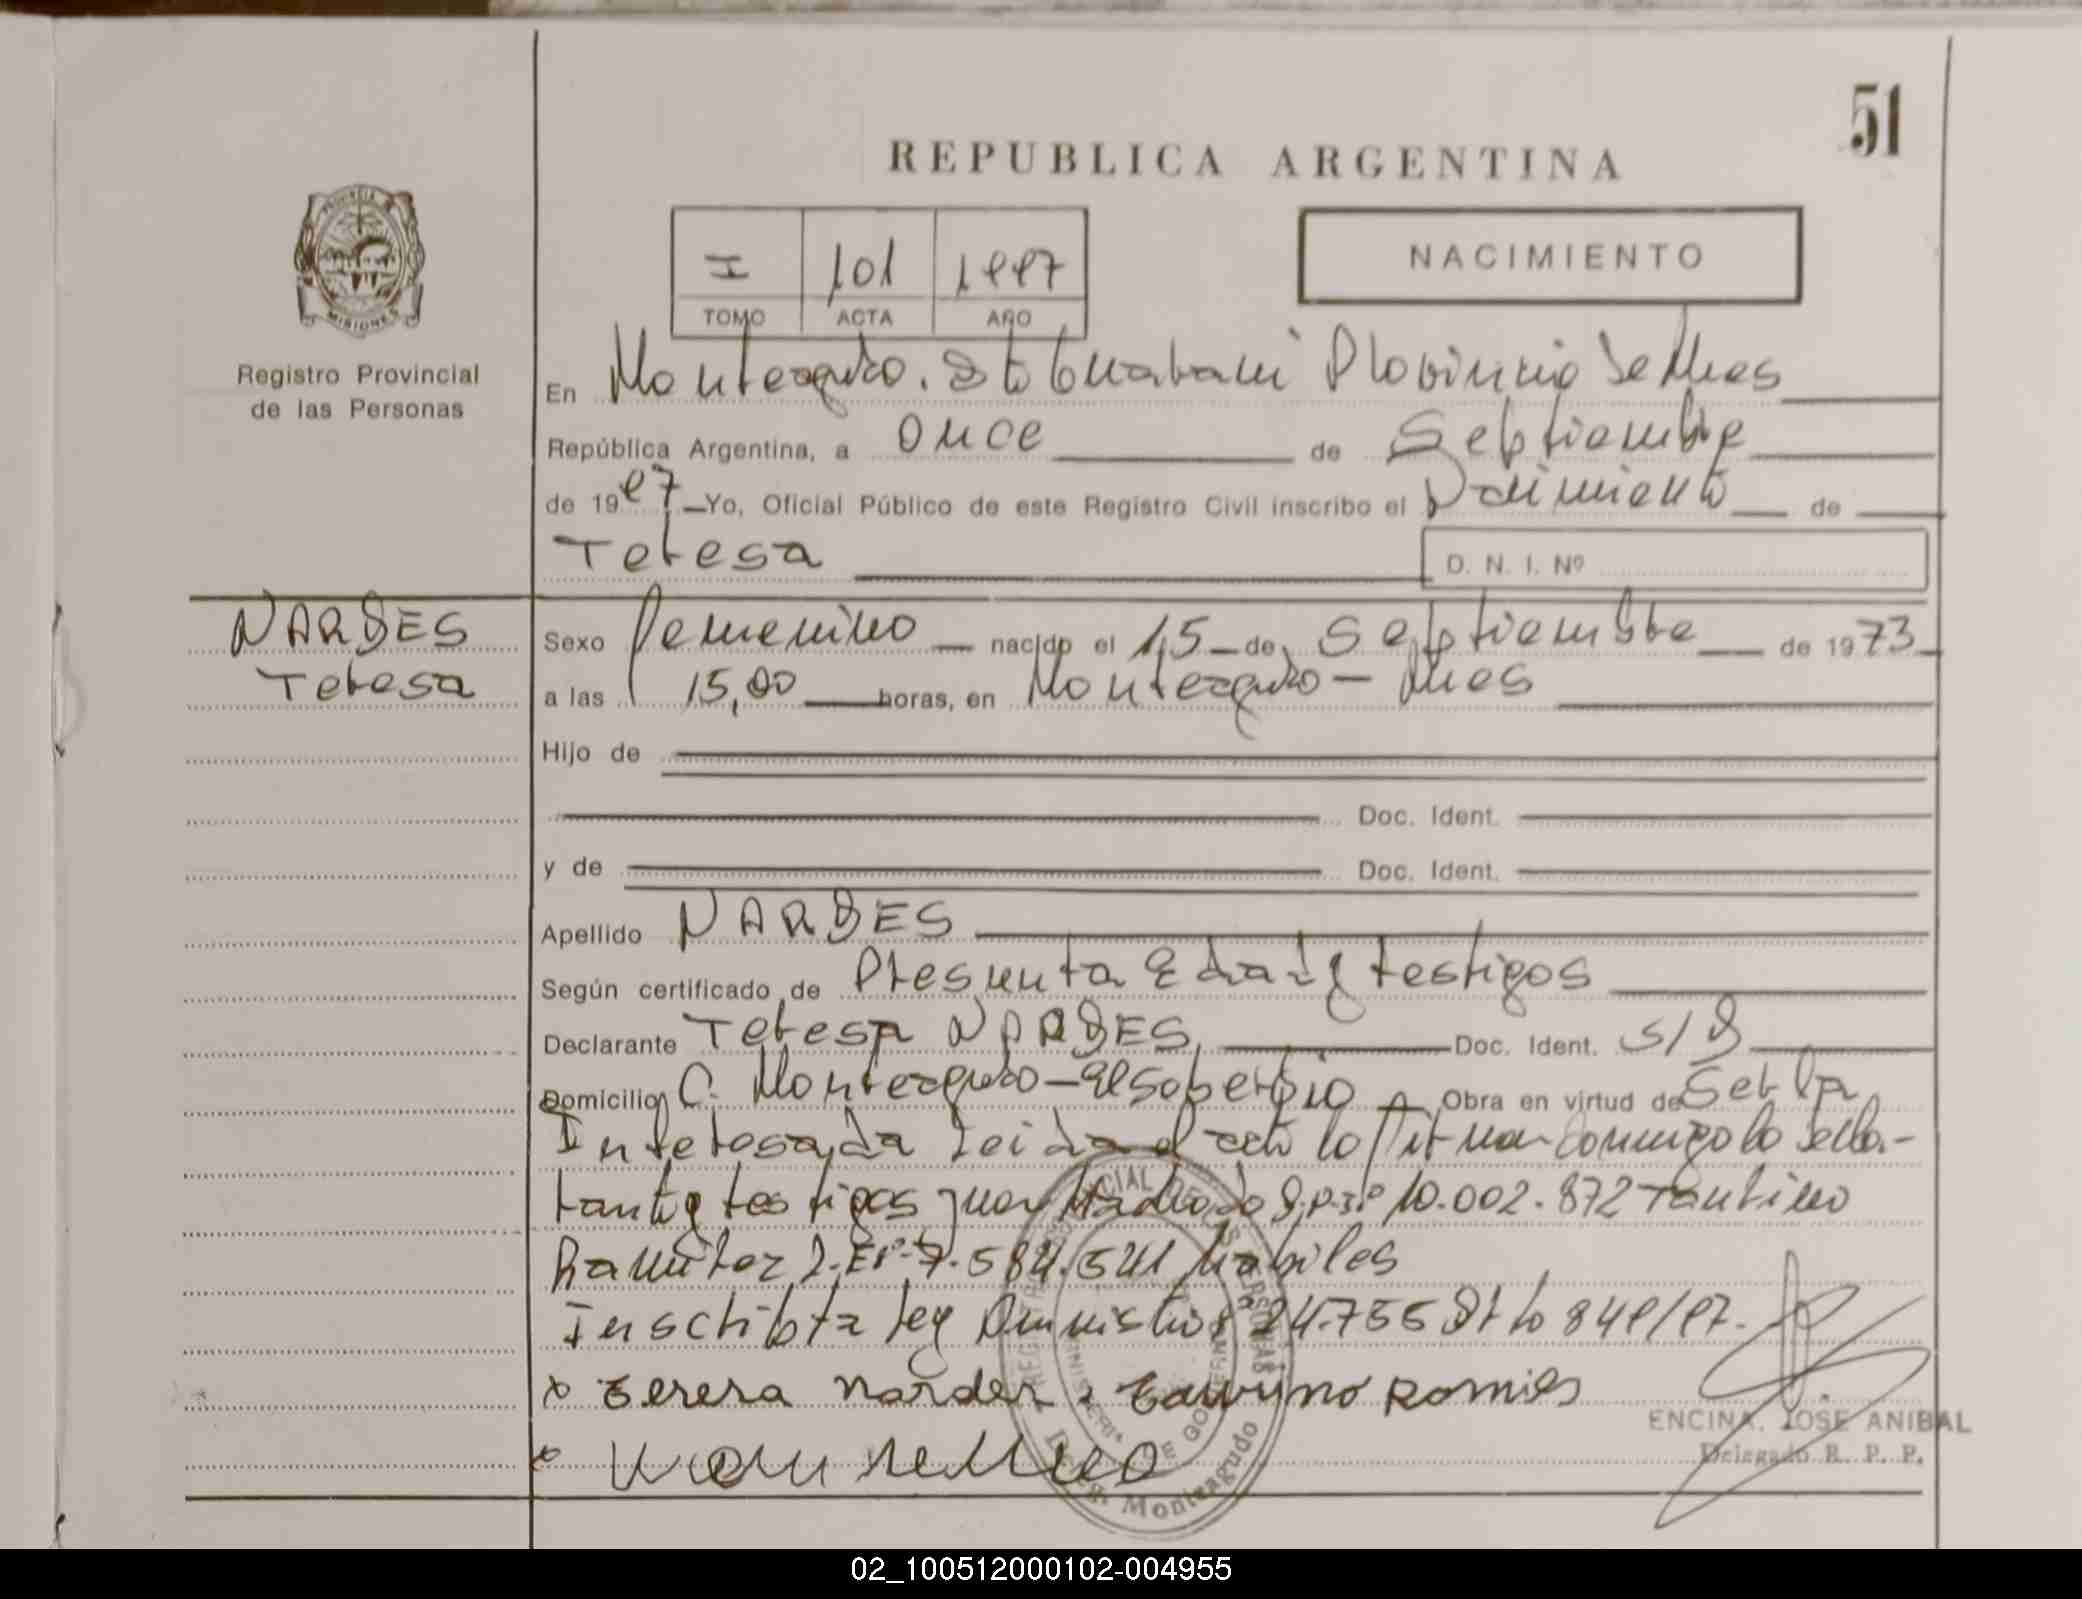 51
REPUBLICA ARGENTINA
PROVINCIA DE
MISIONES
Registro Provincial
de las Personas
I 101 1997
TOMO ACTA AÑO
NACIMIENTO
En Monteagudo. Dto Guarani Provincia de Mnes
República Argentina, a once de Septiembre
de 1997 Yo, Oficial Público de este Registro Civil inscribo el Nacimiento de
Teresa D. N. I. Nº
NARDES
Teresa
Sexo Femenino nacido el 15 de Septiembre de 1973
a las 15,00 horas, en Monteagudo - Mnes
Hijo de
Doc. Ident.
y de Doc. Ident.
Apellido NARDES
Según certificado de Presunta Edad y testigos
Declarante Teresa NARDES Doc. Ident. S/D
Domicilio C. Monteagudo - El Soberbio Obra en virtud de Ser la
Interesada Leida el acta la firman conmigo la decla-
rante y testigos Juan 10.002.872
Ramirez 7.584.541 habiles
Inscripta ley 24.755 Dto 849/97.
x Teresa Nardes
x
REGISTRO PROVINCIAL DE LAS PERSONAS
MINISTERIO DE GOBIERNO
Deleg. Monteagudo
ENCINA, JOSÉ ANIBAL
Delegado R. P. P.
02_100512000102-004955